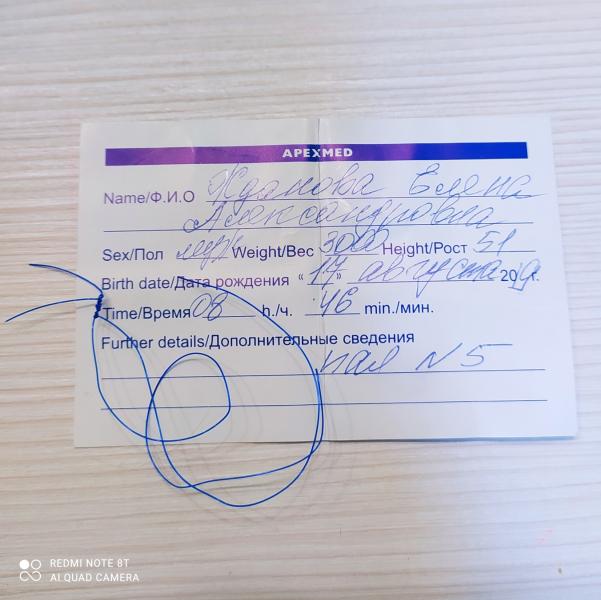 APEXMED
Name/Ф.И.О Жданова Елена
Александровна
Sex/Пол муж Weight/Вес 3000 Height/Рост 51
Birth date/Дата рождения “17” августа 2019г.
Time/Время 08 h./ч. 46 min./мин.
Further details/Дополнительные сведения
пал N 5
REDMI NOTE 8T
AI QUAD CAMERA